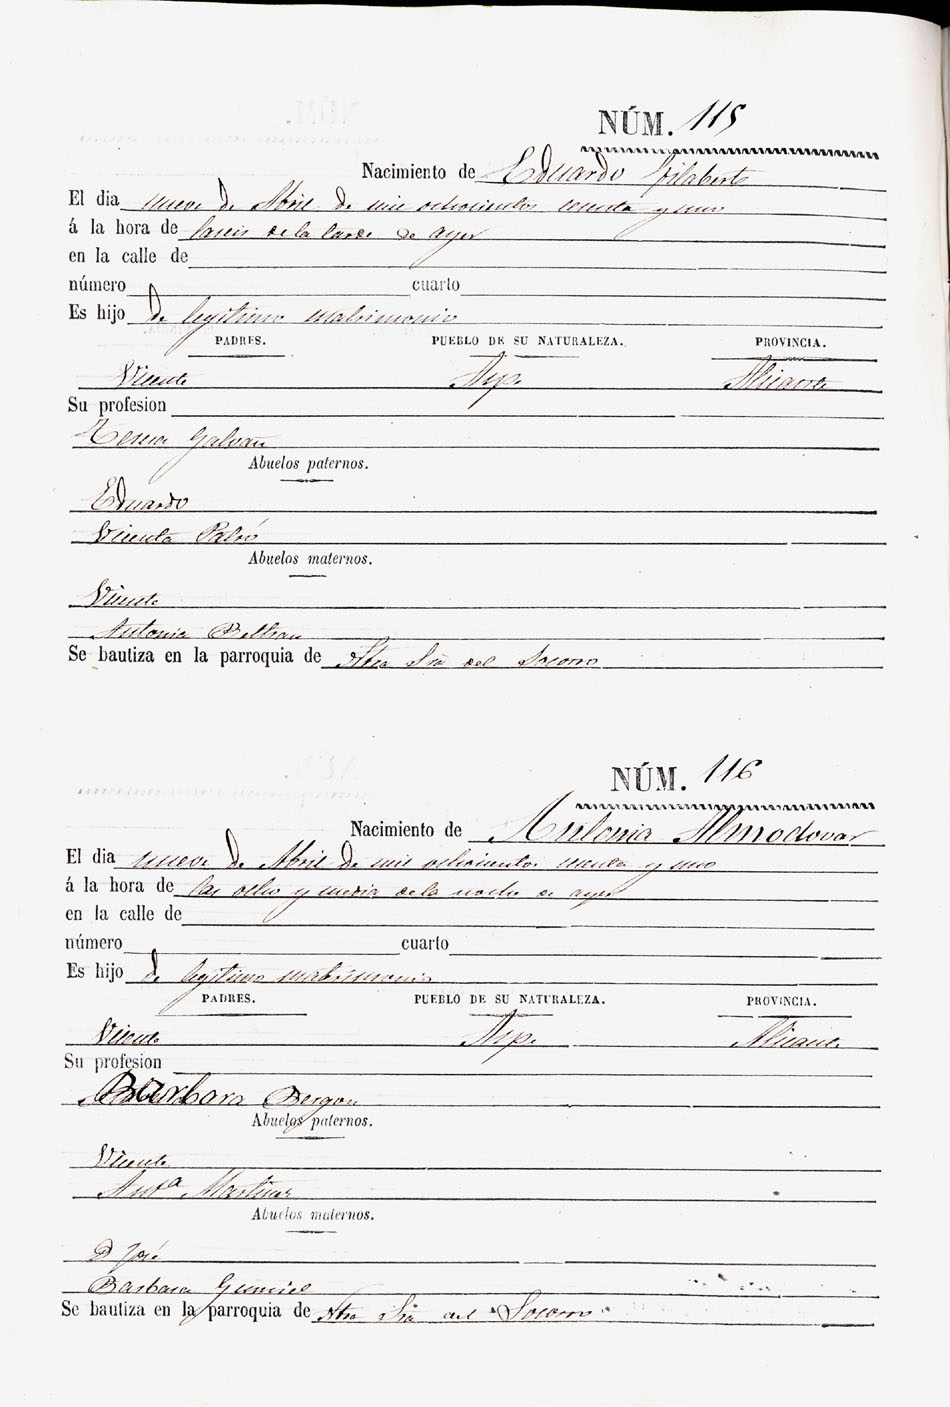 NÚM. 115
Nacimiento de Eduardo Gilaberte
El dia nueve de Abril de mil ochocientos cincuenta y uno
á la hora de las seis de la tarde de ayer
en la calle de
número cuarto
Es hijo de legitimo matrimonio
PADRES. PUEBLO DE SU NATURALEZA. PROVINCIA.
Vicente Asp. Alicante
Su profesion
Teresa Galvan
Abuelos paternos.
Eduardo
Vicenta
Abuelos maternos.
Vicente
Antonia Beltran
Se bautiza en la parroquia de Ntra Sra del Socorro
NÚM. 116
Nacimiento de Antonia Almodovar
El dia nueve de Abril de mil ochocientos y uno
á la hora de las ocho y media de la noche de ayer
en la calle de
número cuarto
Es hijo de legitimo matrimonio
PADRES. PUEBLO DE SU NATURALEZA. PROVINCIA.
Vicente Asp. Alicante
Su profesion
Barbara
Abuelos paternos.
Vicente
Antª Martinez
Abuelos maternos.
D José
Barbara Gumiel
Se bautiza en la parroquia de Ntra Sra del Socorro